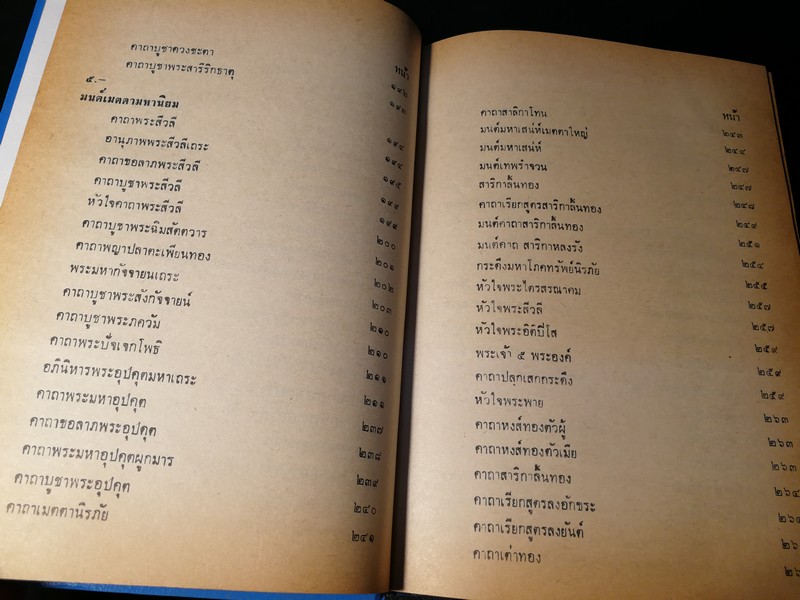 หน้า
คาถาบูชาดวงชะตา ๑๙๒
คาถาบูชาพระสารีริกธาตุ ๑๙๒
๕.-
มนต์เมตตามหานิยม ๑๙๔
คาถาพระสีวลี ๑๙๔
อานุภาพพระสีวลีเถระ ๑๙๕
คาถาขอลาภพระสีวลี ๑๙๙
คาถาบูชาพระสีวลี ๑๙๙
หัวใจคาถาพระสีวลี ๒๐๐
คาถาบูชาพระฉิมสัตตวาร ๒๐๑
คาถาพญาปลาตะเพียนทอง ๒๐๒
พระมหากัจจายนเถระ ๒๐๓
คาถาบูชาพระสังกัจจายน์ ๒๑๐
คาถาบูชาพระภควัม ๒๑๐
คาถาพระปัจเจกโพธิ ๒๑๑
อภินิหารพระอุปคุตมหาเถระ ๒๑๑
คาถาพระมหาอุปคุต ๒๓๗
คาถาขอลาภพระอุปคุต ๒๓๘
คาถาพระมหาอุปคุตผูกมาร ๒๓๙
คาถาบูชาพระอุปคุต ๒๔๐
คาถาเมตตานิรภัย ๒๔๑
หน้า
คาถาสาลิกาโทน ๒๔๓
มนต์มหาเสน่ห์เมตตาใหญ่ ๒๔๔
มนต์มหาเสน่ห์ ๒๔๗
มนต์เทพรำจวน ๒๔๗
สาริกาลิ้นทอง ๒๔๘
คาถาเรียกสูตรสาริกาลิ้นทอง ๒๔๙
มนต์คาถาสาริกาลิ้นทอง ๒๕๑
มนต์คาถ สาริกาหลงรัง ๒๕๔
กระดึงมหาโภคทรัพย์นิรภัย ๒๕๕
หัวใจพระไตรสรณาคม ๒๕๗
หัวใจพระสีวลี ๒๕๗
หัวใจพระอิติปิโส ๒๕๙
พระเจ้า ๕ พระองค์ ๒๕๙
คาถาปลุกเสกกระดึง ๒๕๙
หัวใจพระพาย ๒๖๓
คาถาหงส์ทองตัวผู้ ๒๖๓
คาถาหงส์ทองตัวเมีย ๒๖๓
คาถาสาริกาลิ้นทอง ๒๖๔
คาถาเรียกสูตรลงอักขระ ๒๖๔
คาถาเรียกสูตรลงยันต์
คาถาเต่าทอง